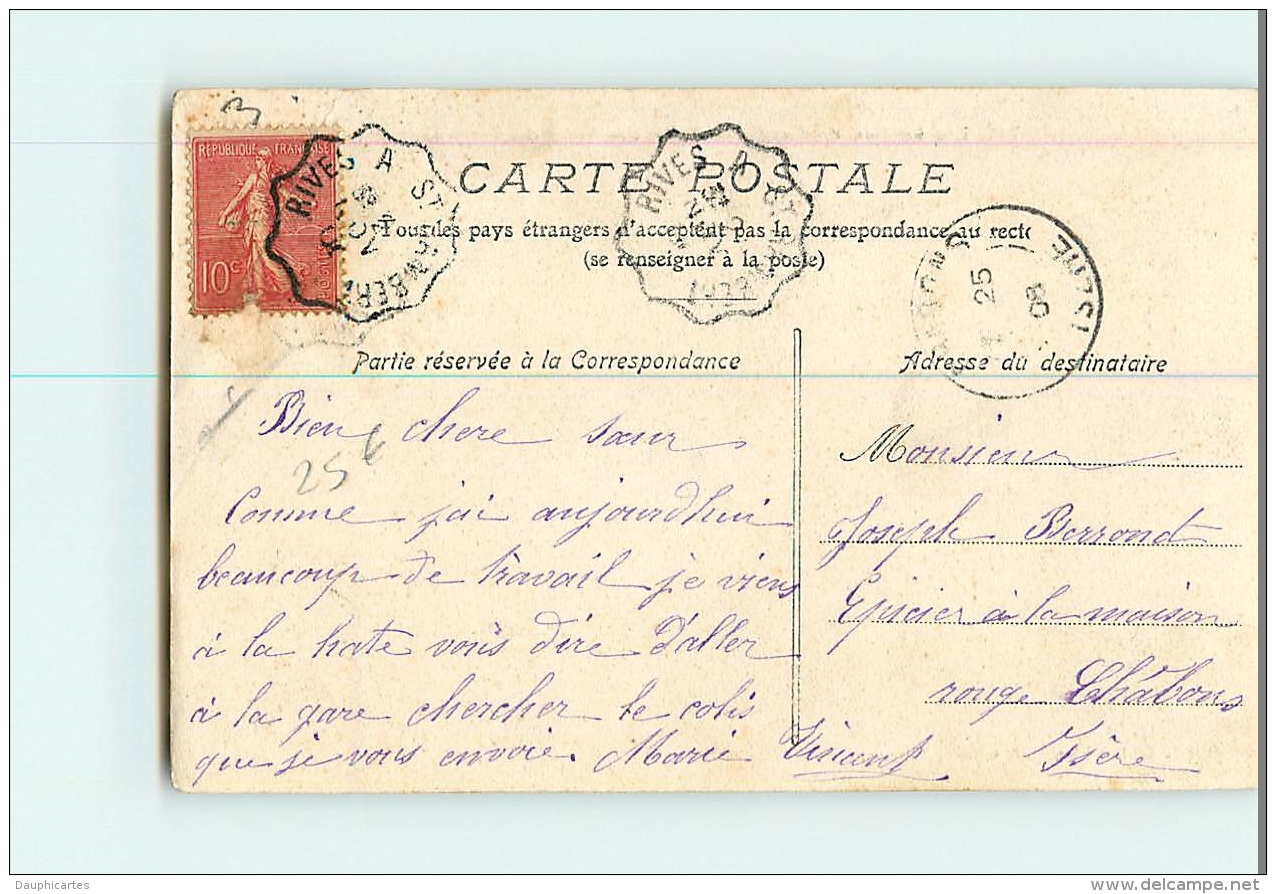 3
RÉPUBLIQUE FRANÇAISE
10 c
POSTES
RIVES A ST RAMBERT
RIVES A ST RAMBERT
CARTE POSTALE
Tous les pays étrangers n'acceptent pas la correspondance au recto
(se renseigner à la poste)
25
08
ISÈRE
Partie réservée à la Correspondance
Adresse du destinataire
Bien chere sœur
25 €
Comme j'ai aujourd'hui
beaucoup de travail je viens
à la hate vous dire d'aller
à la gare chercher le colis
que je vous envoie. Marie Vincent
Monsieur
Joseph Berrond
Epicier à la maison
rouge Châbons
Isère
Dauphicartes
www.delcampe.net